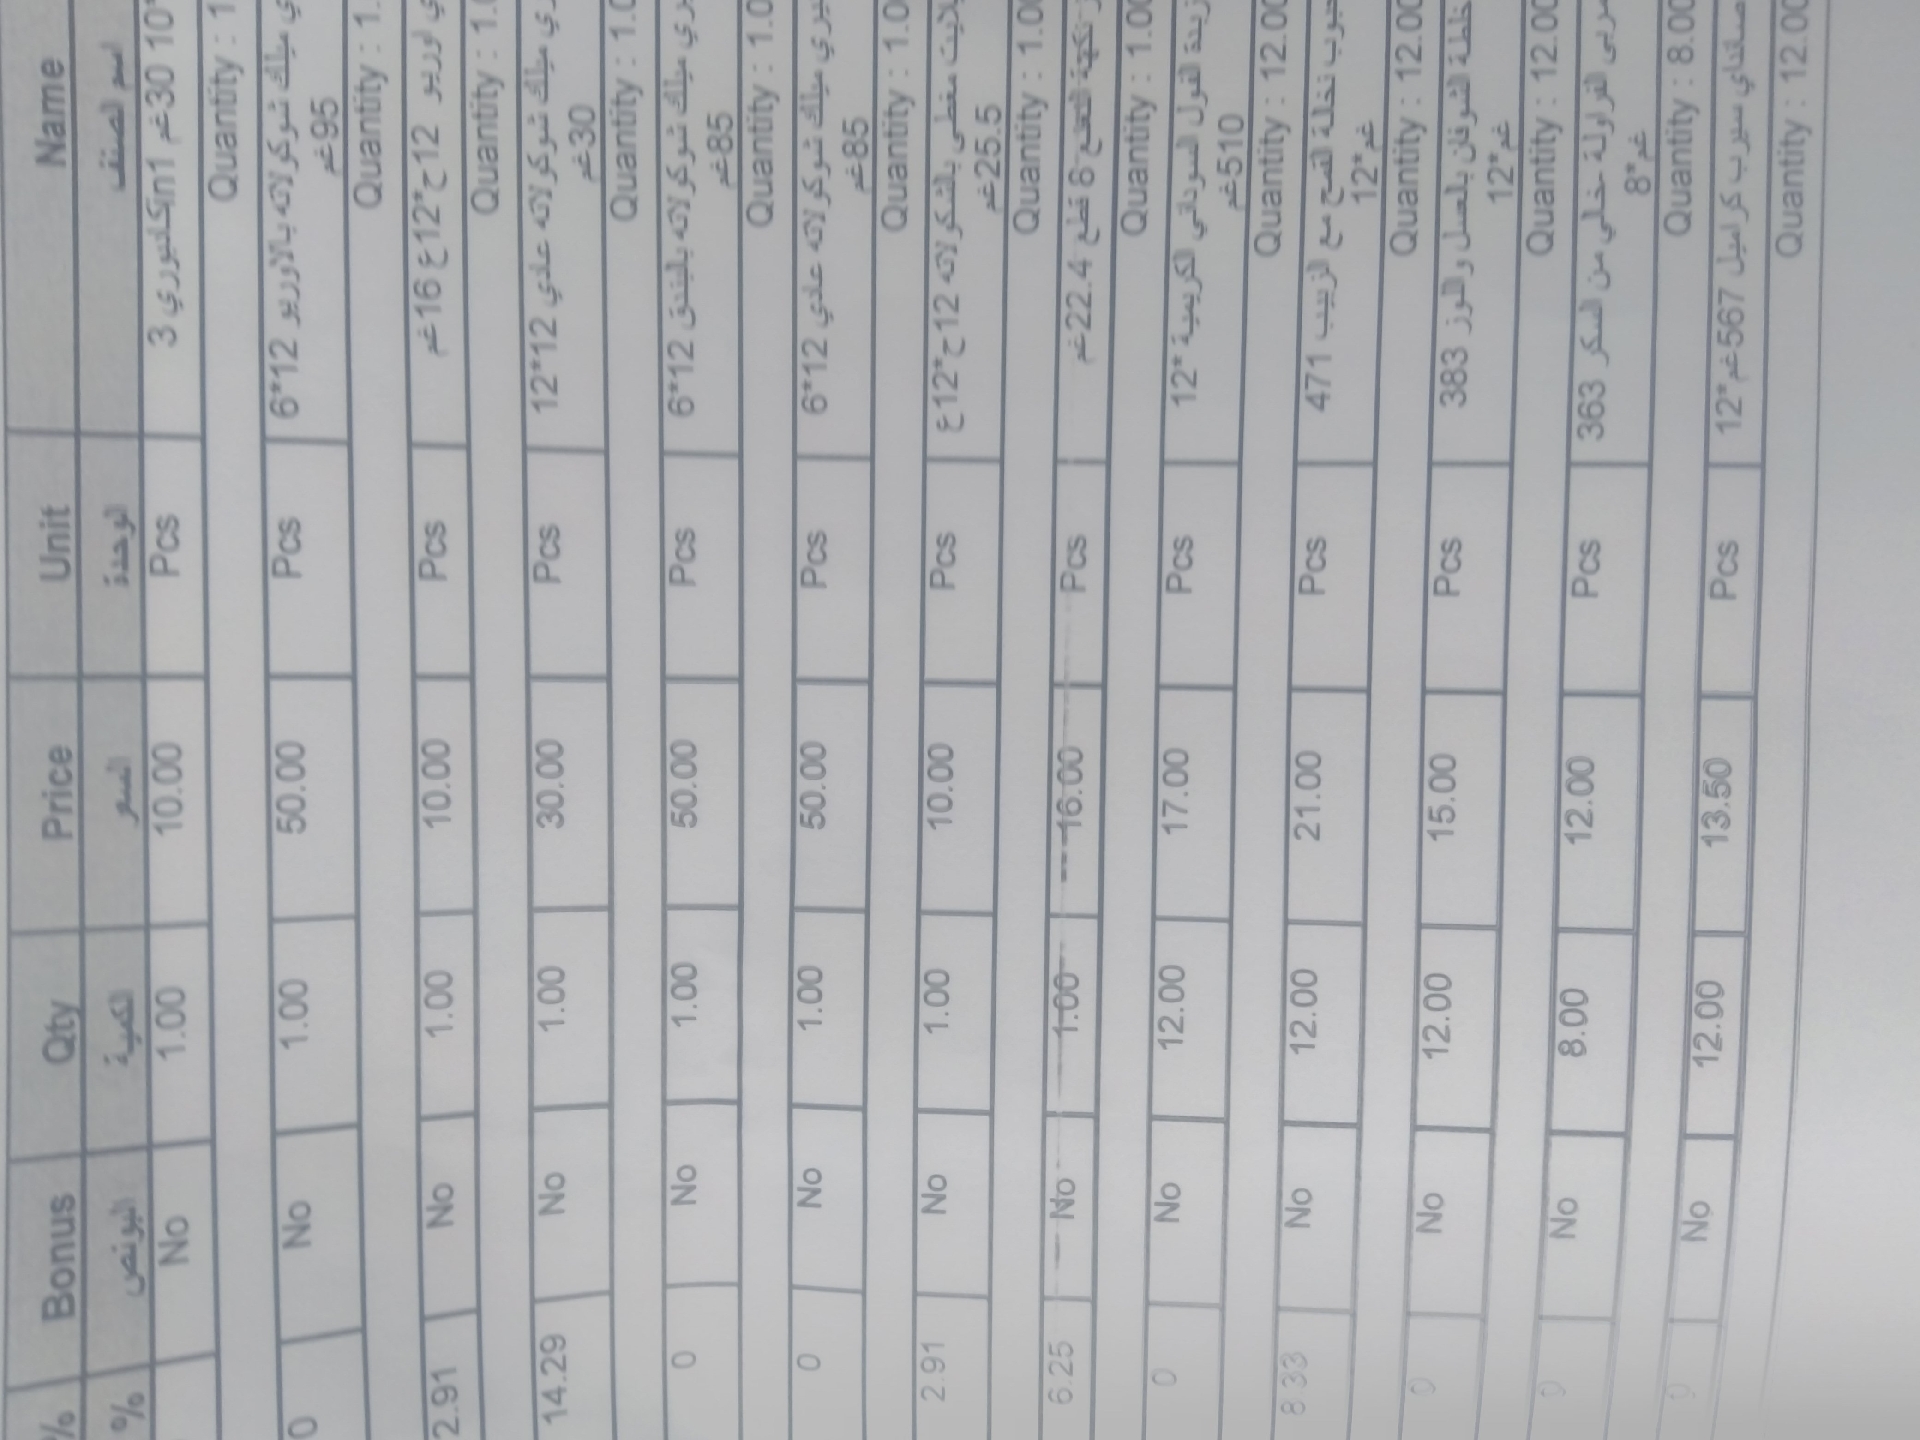 % Bonus Qty Price Unit Name
% البونص الكمية السعر الوحدة اسم الصنف
No 1.00 10.00 Pcs كادبوري 3in1 30غم 10*
Quantity : 1
0 No 1.00 50.00 Pcs ميلك شوكولاته بالاوريو 12*6
95غم
Quantity : 1.
2.91 No 1.00 10.00 Pcs اوريو 12ح*12ع 16غم
Quantity : 1.0
14.29 No 1.00 30.00 Pcs ميلك شوكولاته عادي 12*12
30غم
Quantity : 1.0
0 No 1.00 50.00 Pcs ميلك شوكولاته بالبندق 12*6
85غم
Quantity : 1.0
0 No 1.00 50.00 Pcs ميلك شوكولاته عادي 12*6
85غم
Quantity : 1.0
2.91 No 1.00 10.00 Pcs مغطى بالشكولاته 12ح*12ع
25.5غم
Quantity : 1.00
6.25 No 1.00 16.00 Pcs نكهة النعنع 6 قطع 22.4غم
Quantity : 1.00
0 No 12.00 17.00 Pcs زبدة الفول السوداني الكريمية *12
510غم
Quantity : 12.00
8.33 No 12.00 21.00 Pcs حبوب نخالة القمح مع الزبيب 471
غم*12
Quantity : 12.00
0 No 12.00 15.00 Pcs الشوفان بالعسل واللوز 383
غم*12
Quantity : 12.00
0 No 8.00 12.00 Pcs مربى الفراولة خالي من السكر 363
غم*8
Quantity : 8.00
0 No 12.00 13.50 Pcs صانداي سيرب كراميل 567غم*12
Quantity : 12.00